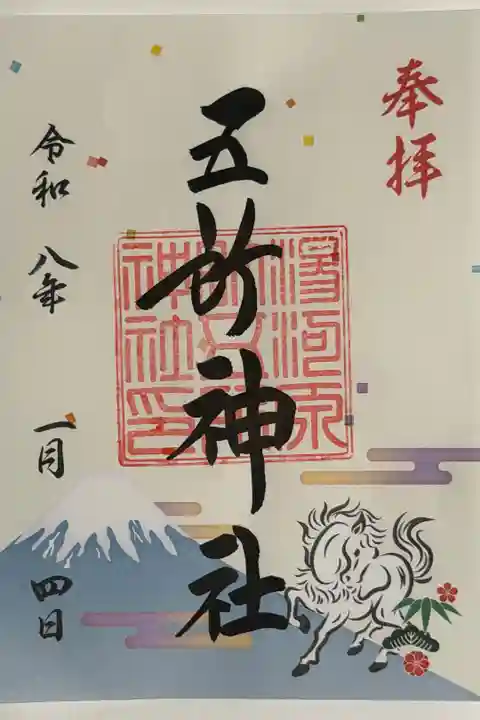 奉拝
五所神社
湯河原
神社印
令和八年
一月
四日